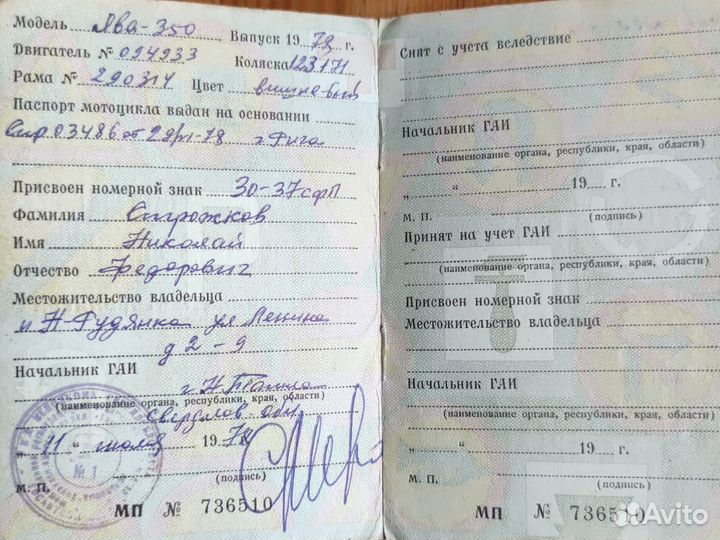 Модель Ява-350 Выпуск 1978 г.
Двигатель № 094933 Коляска 123171
Рама № 290314 Цвет вишнев-бел
Паспорт мотоцикла выдан на основании
Спр 03486 от г. Рига
Присвоен номерной знак 30-37 сфП
Фамилия Сырожков
Имя Николай
Отчество Федорович
Местожительство владельца
ул Ленина
д 2-9
Начальник ГАИ
г. Н Тагила
(наименование органа, республики, края, области)
Свердлов. обл
„ 11 “ июля 1978
(подпись)
№ 1
М. П.
МП № 736510
Снят с учета вследствие
Начальник ГАИ
(наименование органа, республики, края, области)
„ “ 19 г.
м. п. (подпись)
Принят на учет ГАИ
(наименование органа, республики, края, области)
Присвоен номерной знак
Местожительство владельца
Начальник ГАИ
(наименование органа, республики, края, области)
„ “ 19 г.
м. п. (подпись)
МП № 736510
Avito